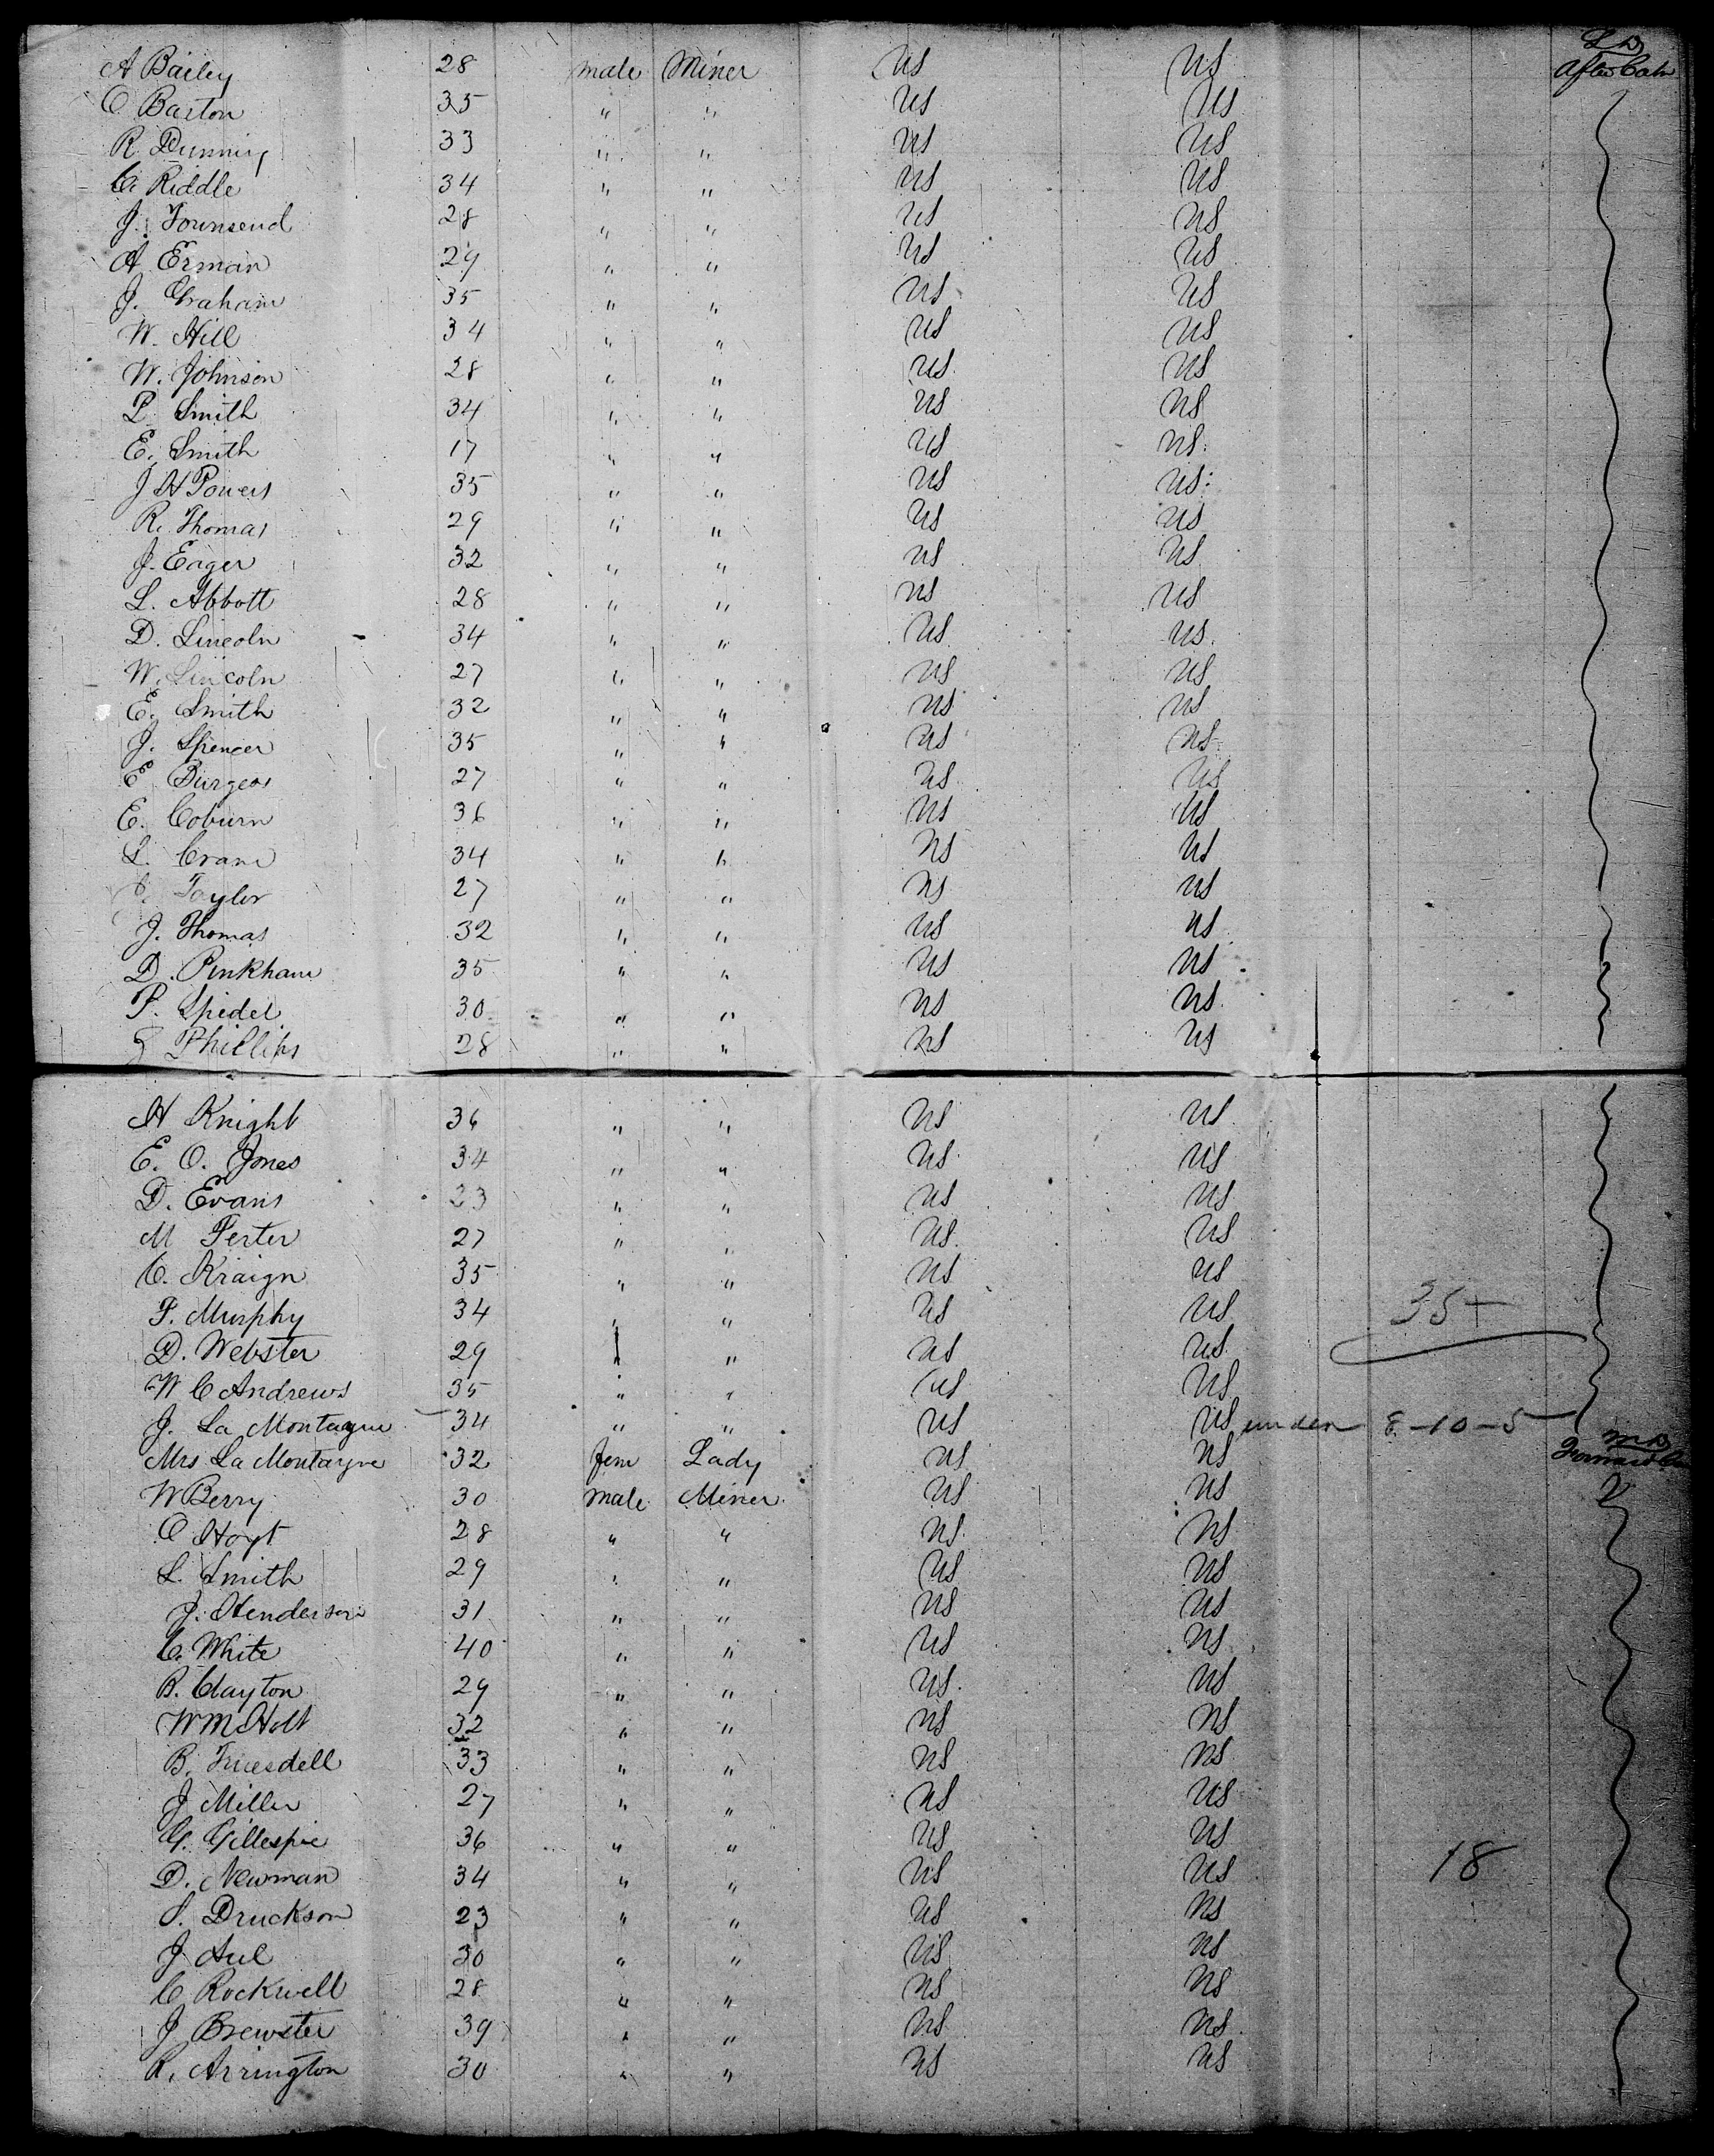 A Bailey 28 male Miner US US L D After Cabn
C Barton 35 " " US US
R Dunning 33 " " US US
C. Riddle 34 " " US US
J. Townsend 28 " " US US
A Erman 29 " " US US
J. Graham 35 " " US US
W. Hill 34 " " US US
W. Johnson 28 " " US US
P. Smith 34 " " US US
E. Smith 17 " " US US
J H Powers 35 " " US US
R. Thomas 29 " " US US
J. Eager 32 " " US US
L. Abbott 28 " " US US
D. Lincoln 34 " " US US
W. Lincoln 27 " " US US
E. Smith 32 " " US US
J. Spencer 35 " " US US
E Burgess 27 " " US US
E. Coburn 36 " " US US
L. Crane 34 " " US US
Taylor 27 " " US US
J. Thomas 32 " " US US
D. Pinkham 35 " " US US
P. Spidel 30 " " US US
Phillips 28 " " US US
H Knight 36 " " US US
E. O. Jones 34 " " US US
D. Evans 23 " " US US
M Ferter 27 " " US US
C. Kraign 35 " " US US
F. Murphy 34 " " US US 35
D. Webster 29 " " US US
W C Andrews 35 " " US US
J. La Montagne 34 " " US US under 8-10-5
Mrs La Montagne 32 fem Lady US US Forward
W Berry 30 male Miner US US
C Hoyt 28 " " US US
L. Smith 29 " " US US
J. Henderson 31 " " US US
C. White 40 " " US US
B. Clayton 29 " " US US
W M Holt 32 " " US US
B. Truesdell 33 " " US US
J Miller 27 " " US US
G. Gillespie 36 " " US US
D. Newman 34 " " US US 18
S. Druckson 23 " " US US
J 30 " " US US
C Rockwell 28 " " US US
J Brewster 39 " " US US
R. Arrington 30 " " US US